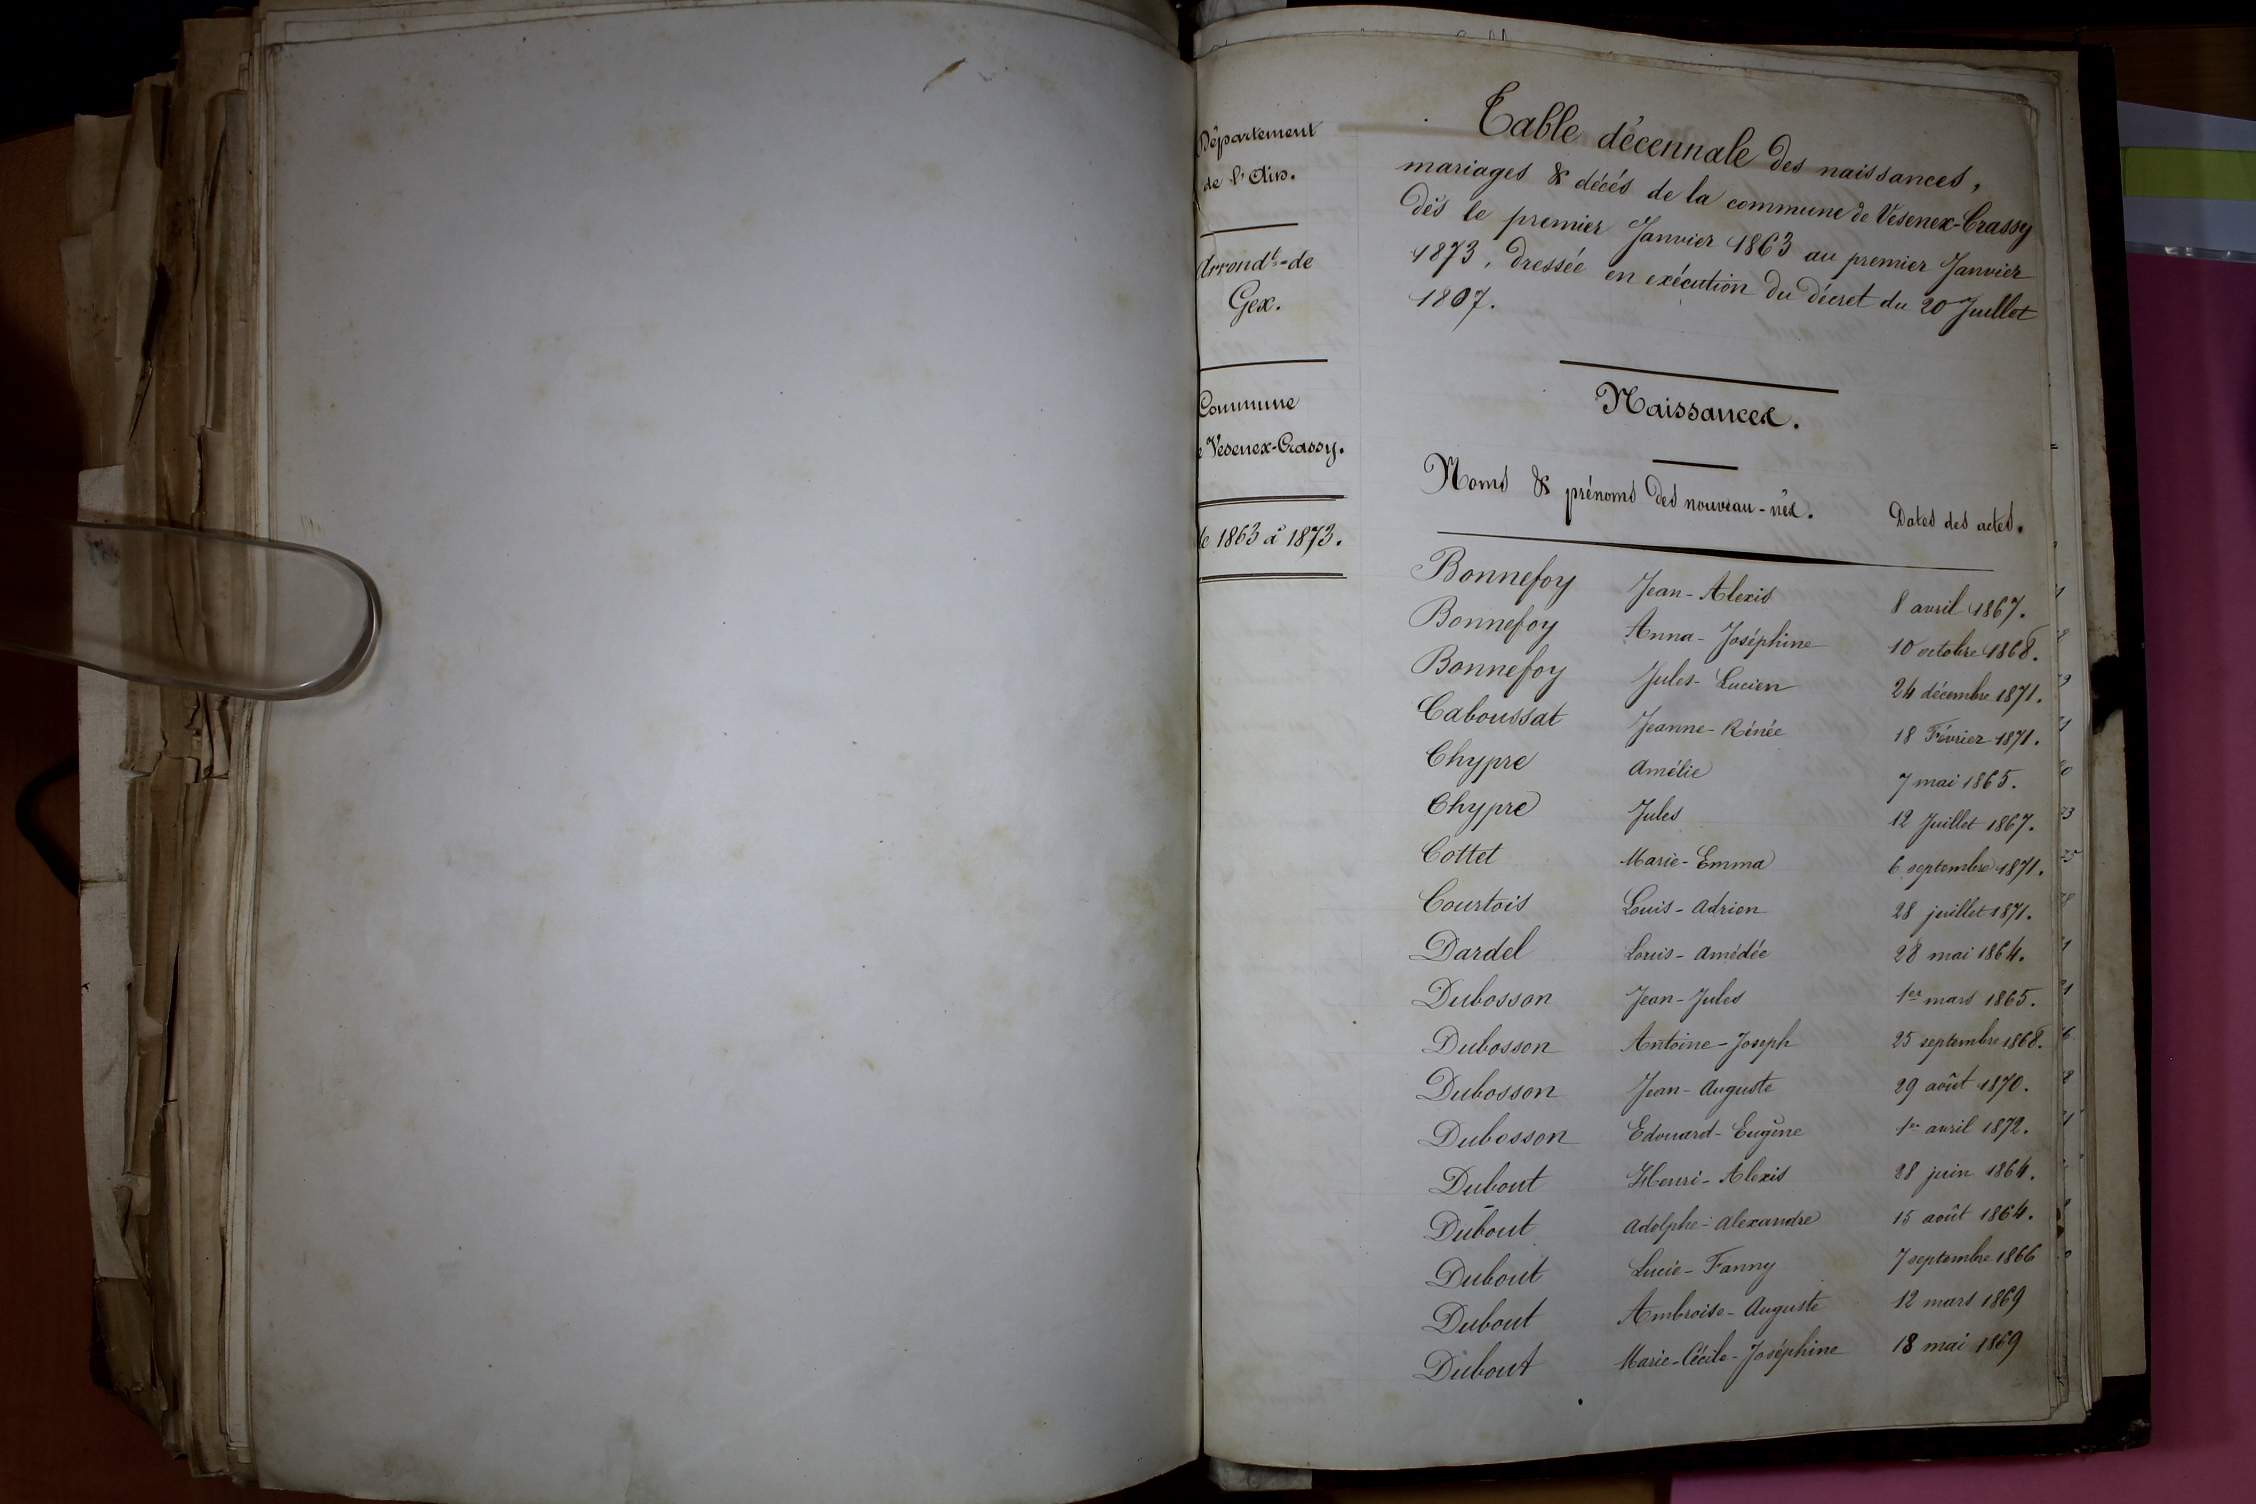 Département
de l'Ain.
Arrondt-de
Gex.
Commune
Vesenex-Crassy.
de 1863 à 1873.
Table décennale des naissances,
mariages & décés de la commune de Vesenex-Crassy
dès le premier Janvier 1863 au premier Janvier
1873, dressée en exécution du décret du 20 Juillet
1807.
Naissances.
Noms & prénoms des nouveau-nés. Dates des actes.
Bonnefoy Jean-Alexis 8 avril 1867.
Bonnefoy Anna-Joséphine 10 octobre 1868.
Bonnefoy Jules-Lucien 24 décembre 1871.
Caboussat Jeanne-Rénée 18 Février 1871.
Chypre Amélie 7 mai 1865.
Chypre Jules 12 Juillet 1867.
Cottet Marie-Emma 6 septembre 1871.
Courtois Louis-Adrien 28 juillet 1871.
Dardel Louis-Amédée 28 mai 1864.
Dubosson Jean-Jules 1er mars 1865.
Dubosson Antoine-Joseph 25 septembre 1868.
Dubosson Jean-Auguste 29 août 1870.
Dubosson Edouard-Eugène 1er avril 1872.
Dubout Henri-Alexis 28 juin 1864.
Dubout Adolphe-Alexandre 15 août 1864.
Dubout Lucie-Fanny 7 septembre 1866
Dubout Ambroise-Auguste 12 mars 1869
Dubout Marie-Cécile-Joséphine 18 mai 1869